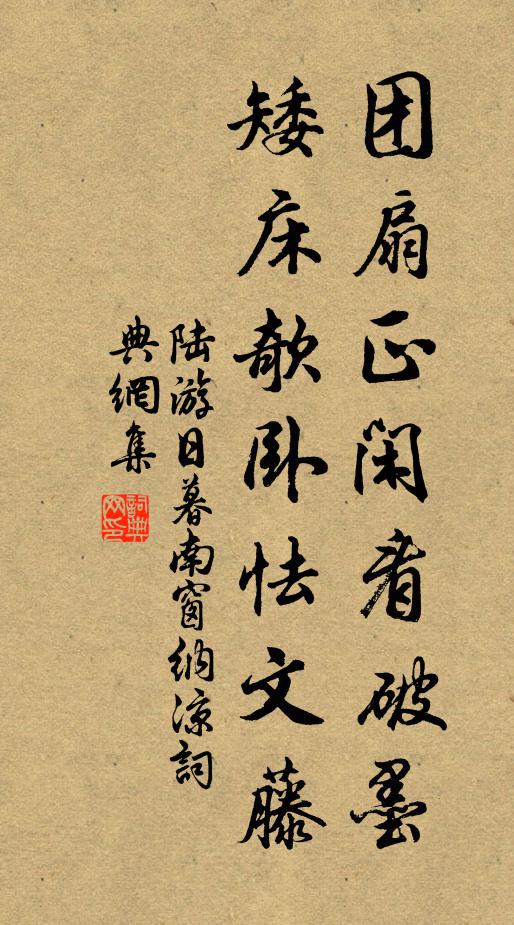 团扇正闲看破墨
矮床欹卧怯文藤
陆游日暮南窗纳凉詞
典網集
詞典网印